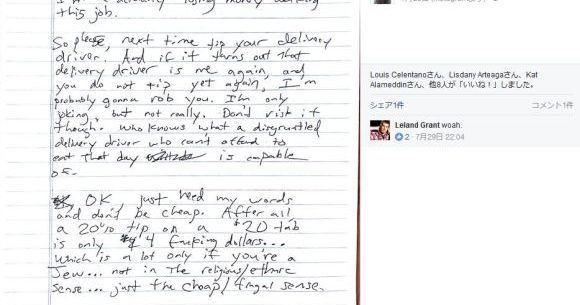 losing money working
this job.
So please, next time tip your delivery
driver. And if it turns out that
delivery driver is me again, and
you do not tip yet again, I'm
probably gonna rob you. I'm only
joking, but not really. Don't risk it
though. Who knows what a disgruntled
delivery driver who can't afford to
eat that day is capable
of.
OK, just heed my words
and don't be cheap. After all
a 20% tip on a $20 tab
is only $4 fucking dollars...
which is a lot only if you're a
Jew... not in the religious/ethnic
sense... just the cheap/frugal sense.
Louis Celentanoさん、Lisdany Arteagaさん、Kat
Alameddinさん、他8人が「いいね！」しました。
シェア1件 コメント1件
Leland Grant woah.
2 · 7月29日 22:04